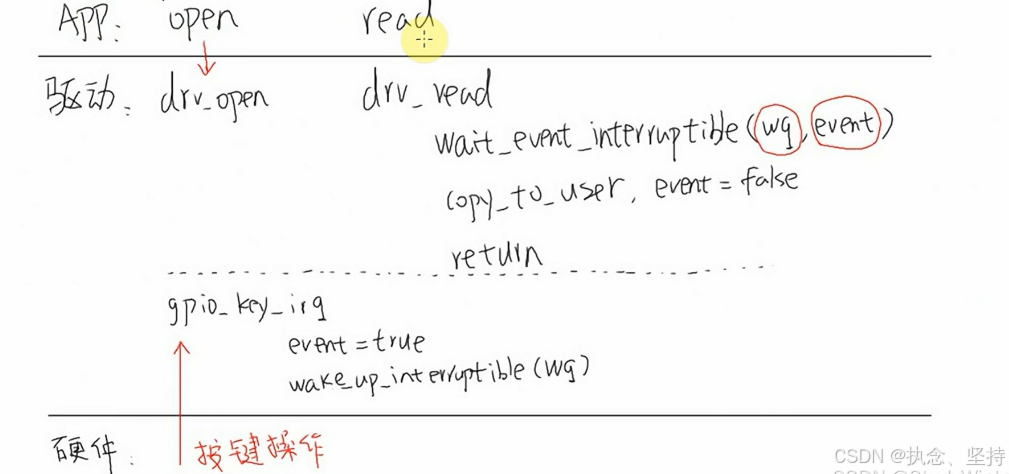 APP: open read
驱动: drv_open drv_read
wait_event_interruptible(wq, event)
copy_to_user, event = false
return
gpio_key_irq
event = true
wake_up_interruptible(wq)
硬件: 按键操作
CSDN @执念、坚持